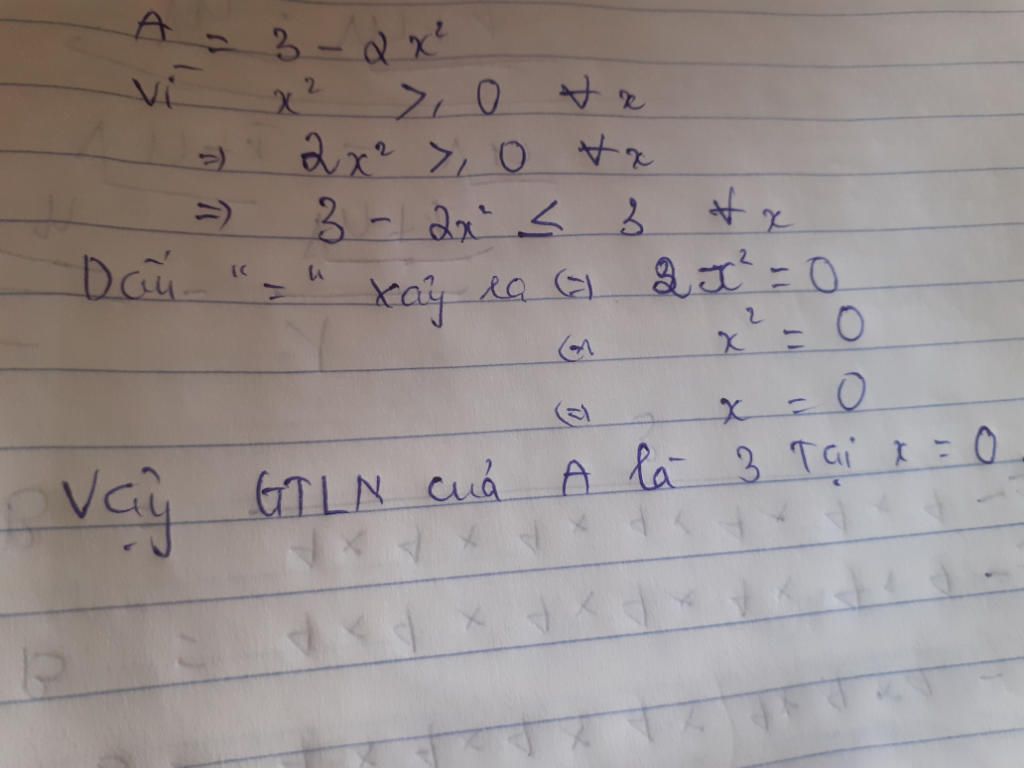 A = 3 - 2x²
Vì x² ≥ 0 ∀x
=> 2x² ≥ 0 ∀x
=> 3 - 2x² ≤ 3 ∀x
Dấu "=" xảy ra <=> 2x² = 0
<=> x² = 0
<=> x = 0
Vậy GTLN của A là 3 Tại x = 0